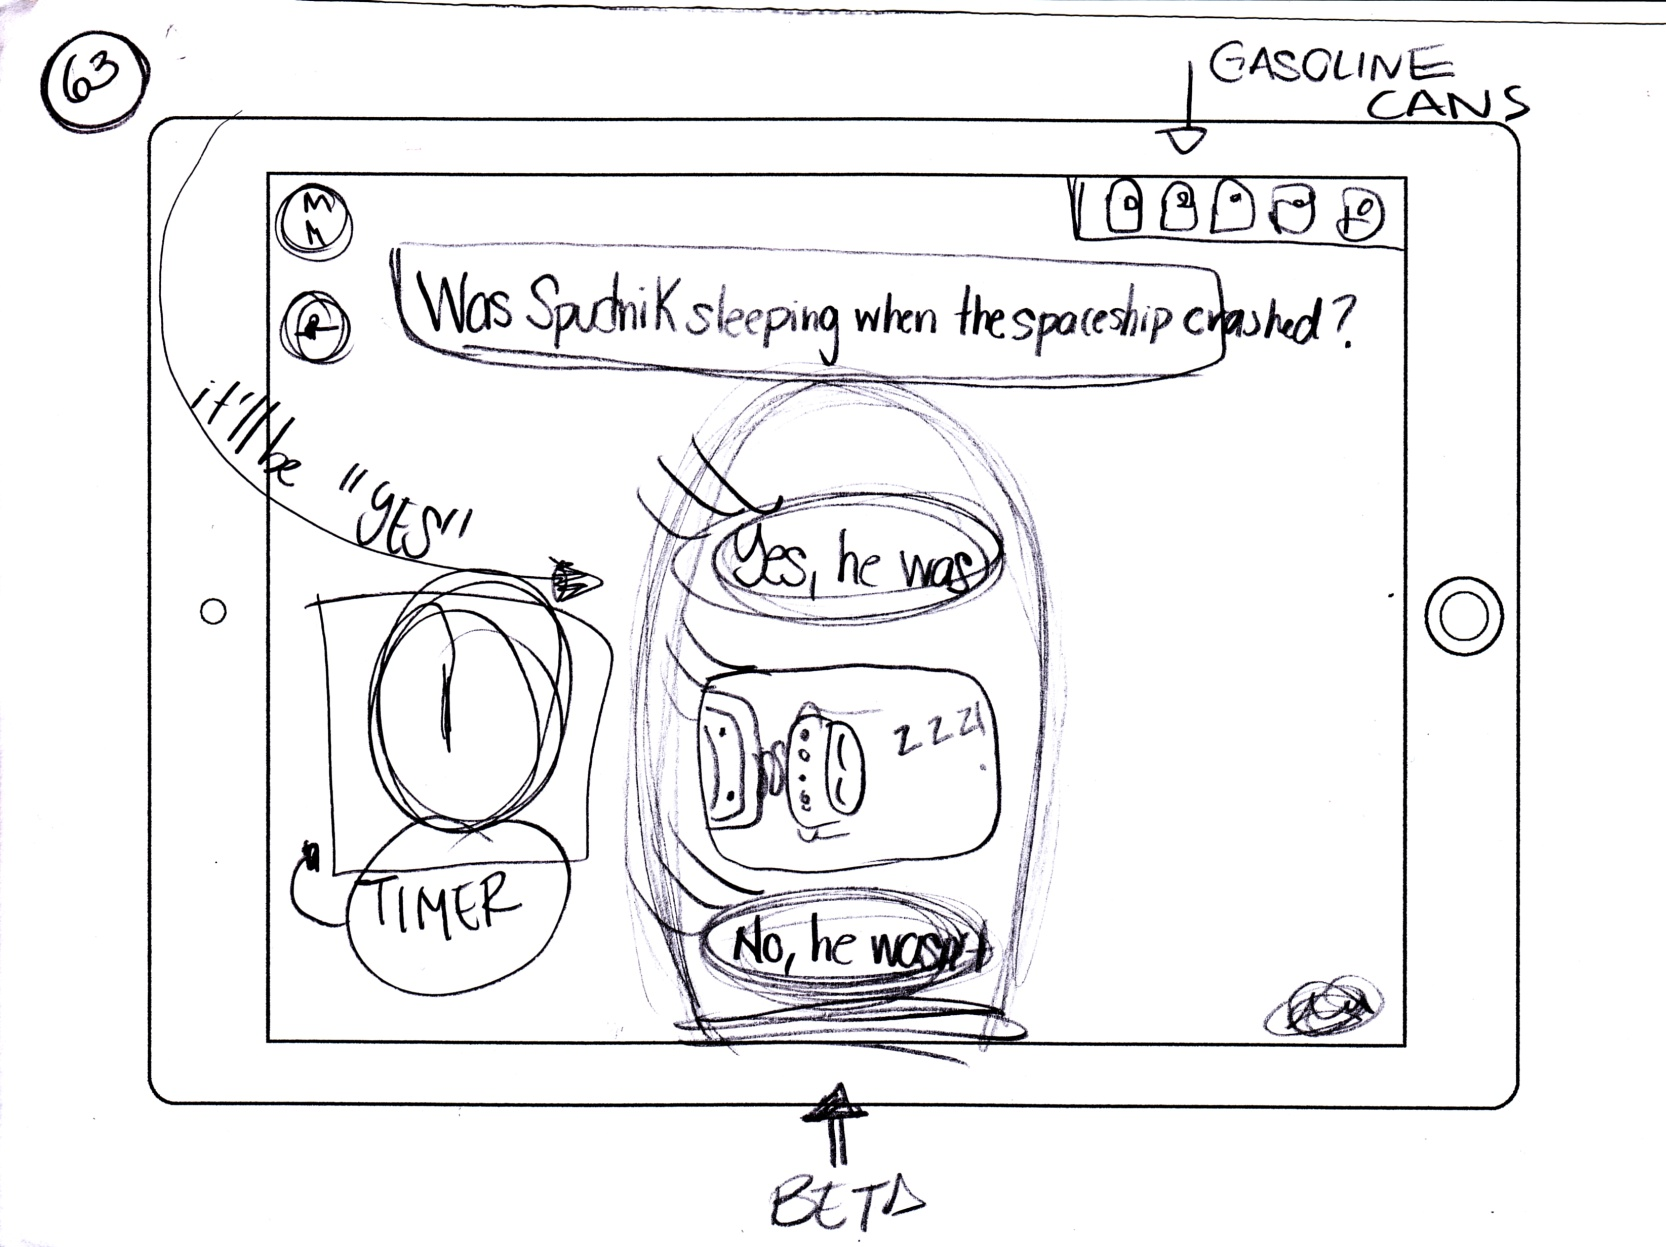 63
GASOLINE
CANS
M
M
Was Spudnik sleeping when the spaceship crashed?
it'll be "YES"
Yes, he was
ZZZ
TIMER
No, he wasn't
BETA